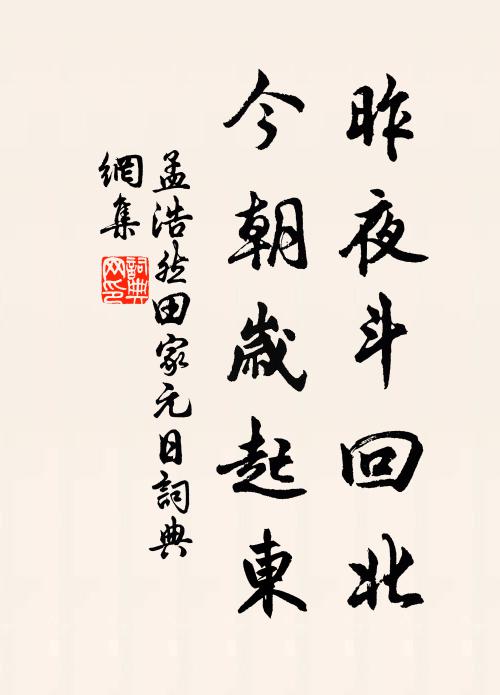 昨夜斗回北
今朝歲起東
孟浩然田家元日詞典
網集
詞典網印